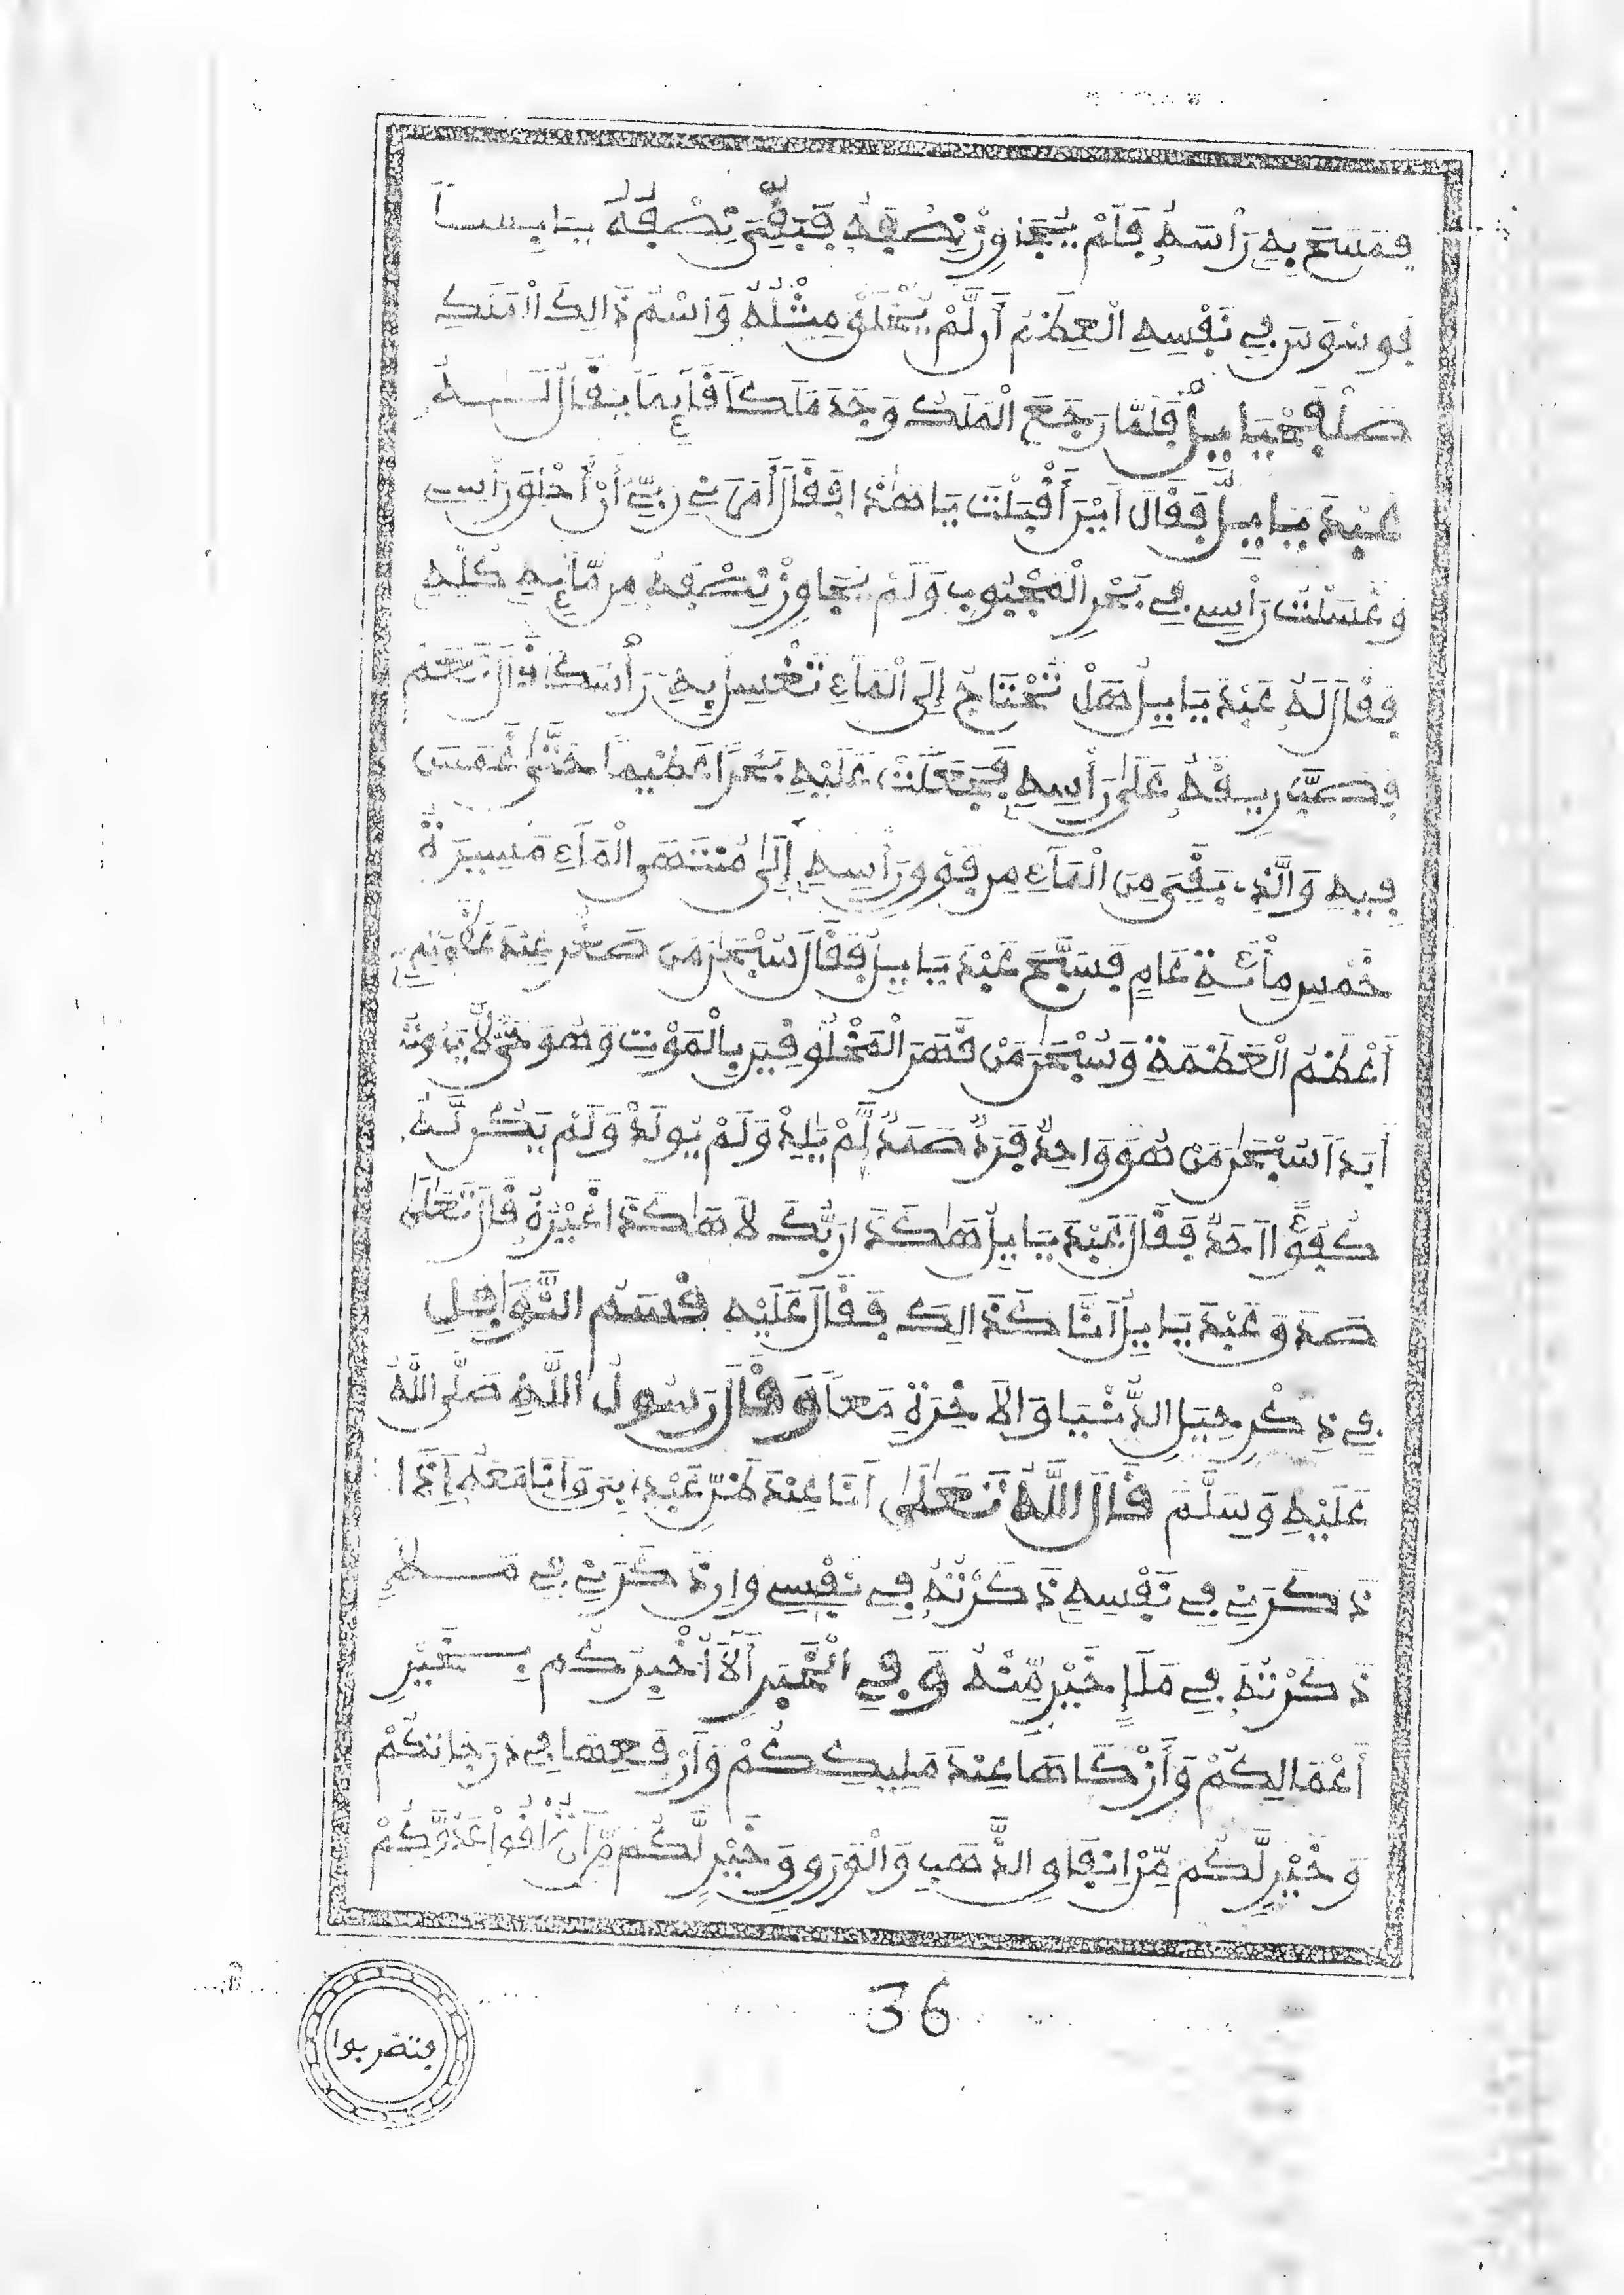 فمسح به رأسه فلم يجاوز نصفه فبقى نصفه يابسا
فوسوس في نفسه العظم أن لم يخلق مثله واسم ذالك الملك
صلفحيايیل فلما رجع الملك وجد ملكا قآئما يقال له
عبديايیل فقال أين أقبلت يا هذا فقال أمرني ربي أن أحلق رأسي
وغسلت رأسي في بحر المحبوب ولم يجاوز نصفه من مآئه كله
فقال له عبديايیل هل تحتاج إلى المآء تغسل به رأسك قال نعم
فصب ريقه على رأسه فجعلت عليه بحرا عظيما حتى غمس
فيه والذى بقى من المآء من فوق رأسه إلى منتهى المآء مسيرة
خمس مائة عام فسبح عبديايیل فقال سبحن من صغر عند
أعظم العظمة وسبحن من قهر المخلوقين بالموت وهو حي لا يموت
أبدا سبحن من هو واحد فرد صمد لم يلد ولم يولد ولم يكن له
كفؤا احد فقال عبديايیل هاكذا ربك لا هاكذا غيره قال تعالى
صدق عبديايیل أنا كذالك فقال عليه قسم النوافل
في ذكر حيل الدنيا والآخرة معا وقال رسول الله صلى الله
عليه وسلم قال الله تعلى أنا عند ظن عبدى بي وأنا معه إذا
ذكرني في نفسه ذكرته في نفسي وإن ذكرني في ملإ
ذكرته في ملإ خير منه وفي الخبر ألا أخبركم بخير
أعمالكم وأزكاها عند مليككم وأرفعها في درجاتكم
وخير لكم من انفاق الذهب والورق وخير لكم من أن تلقوا عدوكم
36
فتضربوا